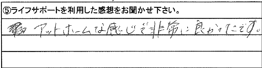 ⑤ライフサポートを利用した感想をお聞かせ下さい。
アットホームな感じで非常に良かったです。